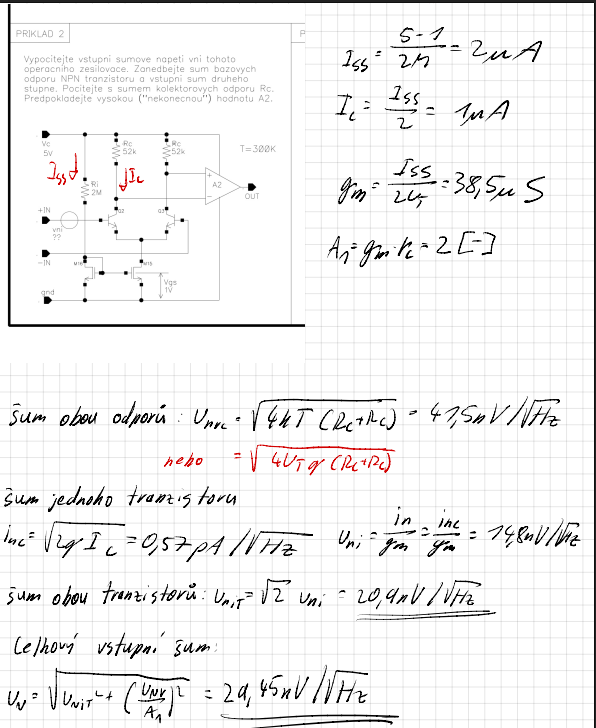 PRIKLAD 2
P
Vypocitejte vstupni sumove napeti vni tohoto
operacniho zesilovace. Zanedbejte sum bazovych
odporu NPN tranzistoru a vstupni sum druheho
stupne. Pocitejte s sumem kolektorovych odporu Rc.
Predpokladejte vysokou ("nekonecnou") hodnotu A2.
Vc
5V
Iss
Ri
2M
Rc
52k
Ic
Rc
52k
T=300K
+
A2
-
OUT
+IN
vni
??
Q2
Q3
-IN
M16
M15
Vgs
1V
gnd
Iss = (5-1)/2M = 2µA
Ic = Iss/2 = 1µA
gm = Iss/2U_T = 38,5µS
A1 = gm·rc = 2 [-]
šum obou odporů: Unrc = √(4kT(Rc+Rc)) = 41,5nV/√Hz
nebo = √(4U_T q (Rc+Rc))
šum jednoho tranzistoru
inc = √(2qIc) = 0,57pA/√Hz Uni = in/gm = inc/gm = 14,8nV/√Hz
šum obou tranzistorů: UniT = √2 Uni = 20,9nV/√Hz
Celkový vstupní šum:
UN = √(UniT² + (UNr/A1)²) = 29,45nV/√Hz